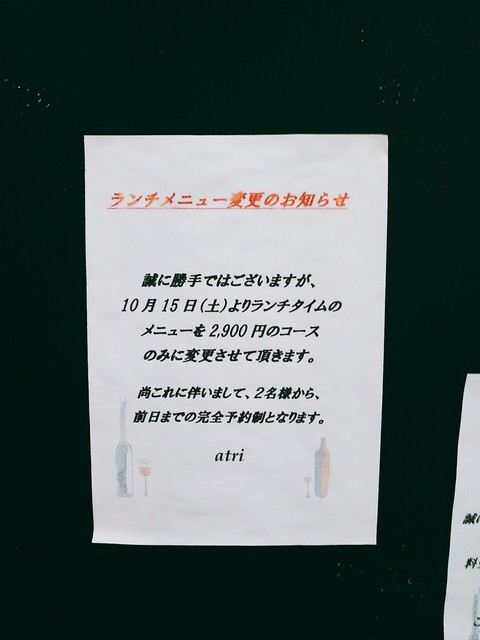 ランチメニュー変更のお知らせ
誠に勝手ではございますが、
10月15日(土)よりランチタイムの
メニューを2,900円のコース
のみに変更させて頂きます。
尚これに伴いまして、2名様から、
前日までの完全予約制となります。
atri
誠に
料